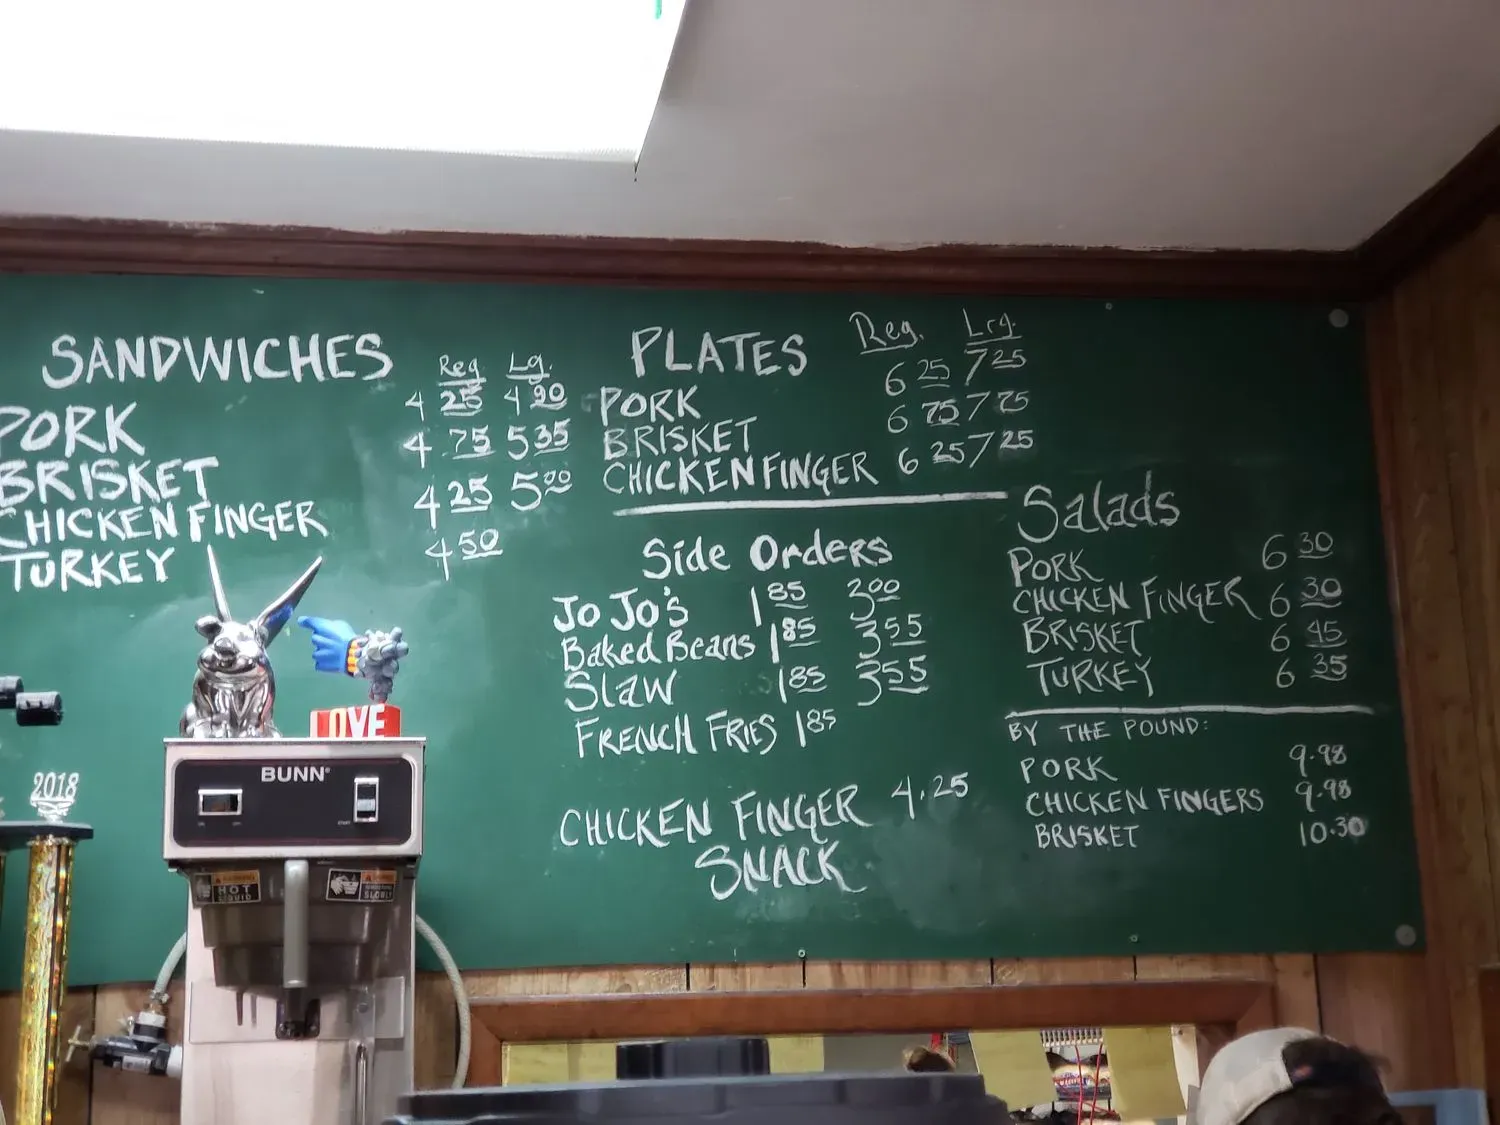 SANDWICHES
Reg Lg.
PORK 4 25 4 90
BRISKET 4 75 5 35
CHICKEN FINGER 4 25 5 00
TURKEY 4 50
PLATES Reg. Lrg.
PORK 6 25 7 25
BRISKET 6 75 7 75
CHICKEN FINGER 6 25 7 25
Side Orders
Jo Jo's 1 85 3 00
Baked Beans 1 85 3 55
Slaw 1 85 3 55
French Fries 1 85
CHICKEN FINGER 4.25
SNACK
Salads
PORK 6 30
CHICKEN FINGER 6 30
BRISKET 6 45
TURKEY 6 35
BY THE POUND:
PORK 9.98
CHICKEN FINGERS 9.98
BRISKET 10.30
LOVE
2018
BUNN
HOT
LIQUID
SLOWLY